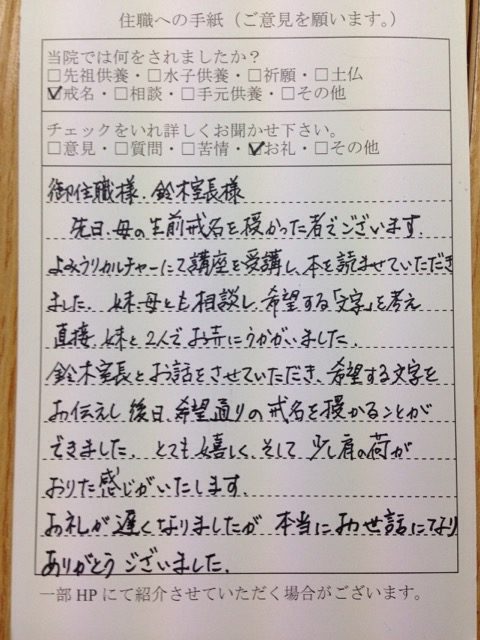 住職への手紙（ご意見を願います。）
当院では何をされましたか？
□先祖供養・□水子供養・□祈願・□土仏
☑戒名・□相談・□手元供養・□その他
チェックをいれ詳しくお聞かせ下さい。
□意見・□質問・□苦情・☑お礼・□その他
御住職様、鈴木室長様
先日、母の生前戒名を授かった者でございます。
よみうりカルチャーにて講座を受講し、本を読ませていただき
ました。妹、母とも相談し、希望する「文字」を考え
直接、妹と2人でお寺にうかがいました。
鈴木室長とお話をさせていただき、希望する文字を
お伝えし後日、希望通りの戒名を授かることが
できました。とても嬉しく、そして少し肩の荷が
おりた感じがいたします。
お礼が遅くなりましたが本当にお世話になり
ありがとうございました。
一部HPにて紹介させていただく場合がございます。